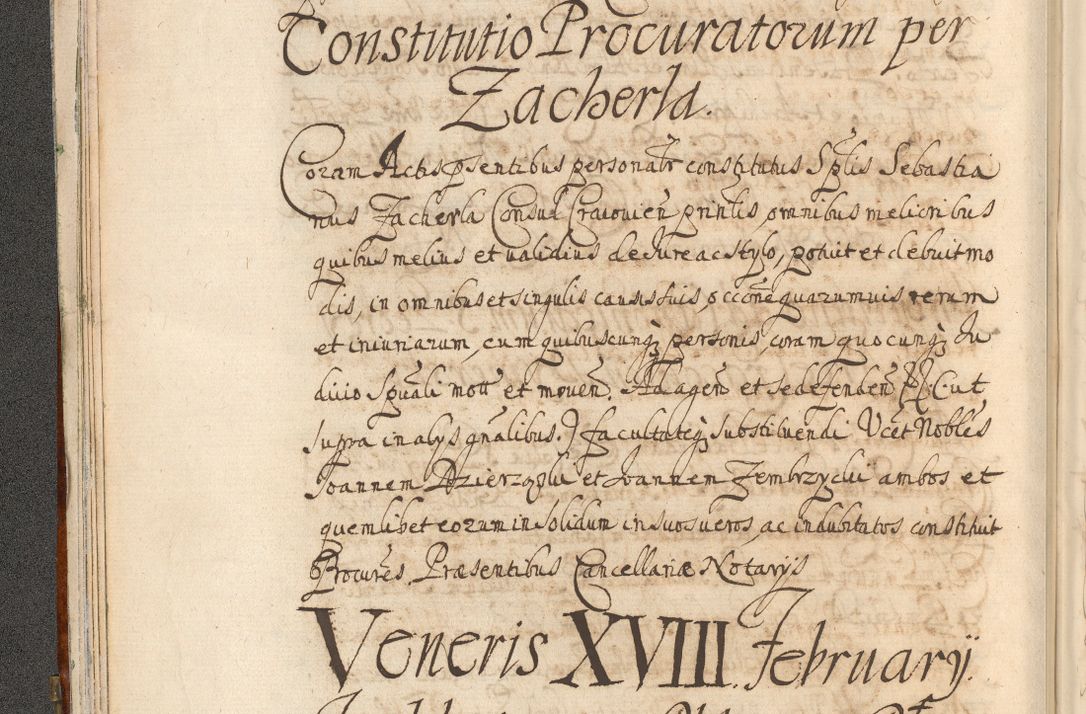 Constitutio Procuratorum per
Zacherla.
Coram Actis pñsentibus personalr constitutus Sptlis Sebastia
nus Zacherla Consul Cracovien̄ prin̄lis, omnibus melioribus
quibus melius et validius de Jure ac Stylo, potuit et debuit mo
dis, in omnibus et singulis causis suis, occōne quarumvis rerum
et iniuriarum, cum quibuscunq; personis, coram quocunq; Ju
dicio Spūali mott et moven̄. Ad agen̄ et se defenden̄ Ut
supra in alijs gn̄alibus. facultateq; substituendi Nobles
Joannem et Joannem Zembrzycki ambos et
quemlibet eorum in solidum in suos veros, ac indubitatos constituit
Procures. Præsentibus Cancellariæ Notarijs
Veneris XVIII. February.